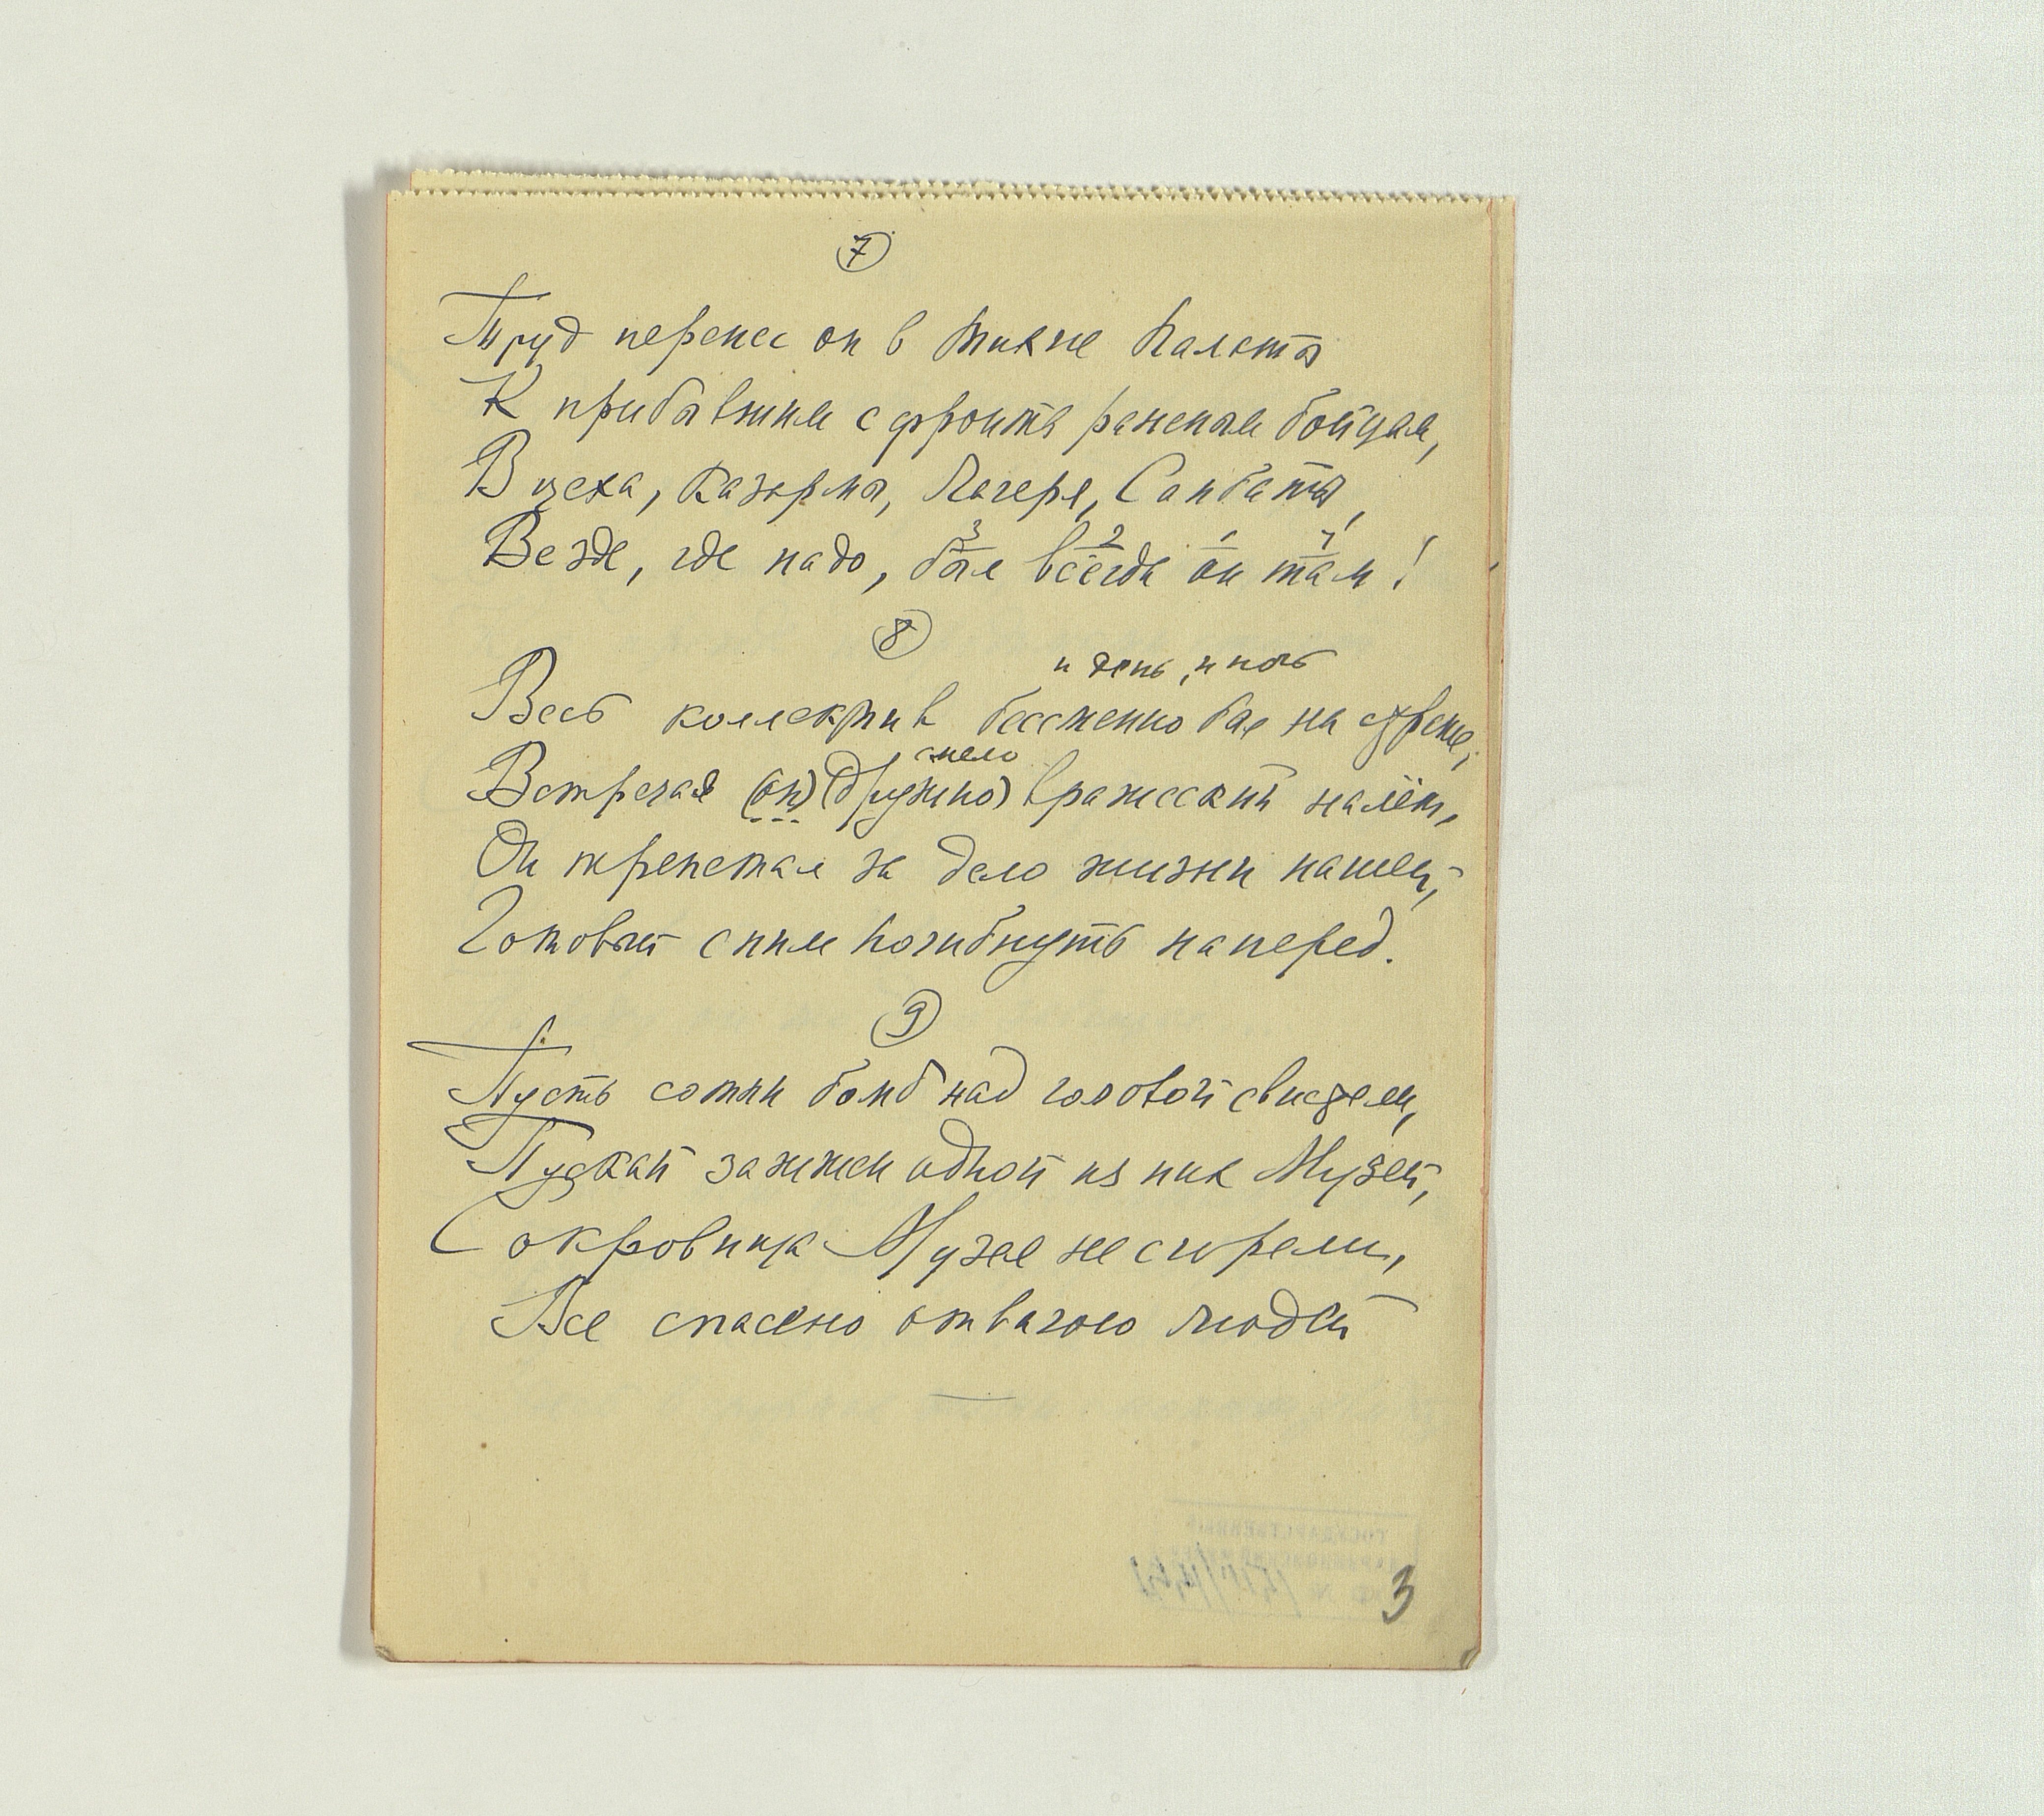 7
Труд перенес он в тихие палаты
К прибывшим с фронта раненым бойцам,
В цеха, казармы, лагеря, Санбаты,
3 2 1 4
Везде, где надо, был всегда он там!
8
и день, и ночь
Весь коллектив бессменно был на страже,
смело
Встречая (он) (дружно) вражеский налёт,
Он трепетал за дело жизни нашей,
Готовый с ним погибнуть наперед.
9
Пусть сотни бомб над головой свистели,
Пускай зажжен одной из них Музей,
Сокровища Музея не сгорели,
Все спасено отвагою людей
3